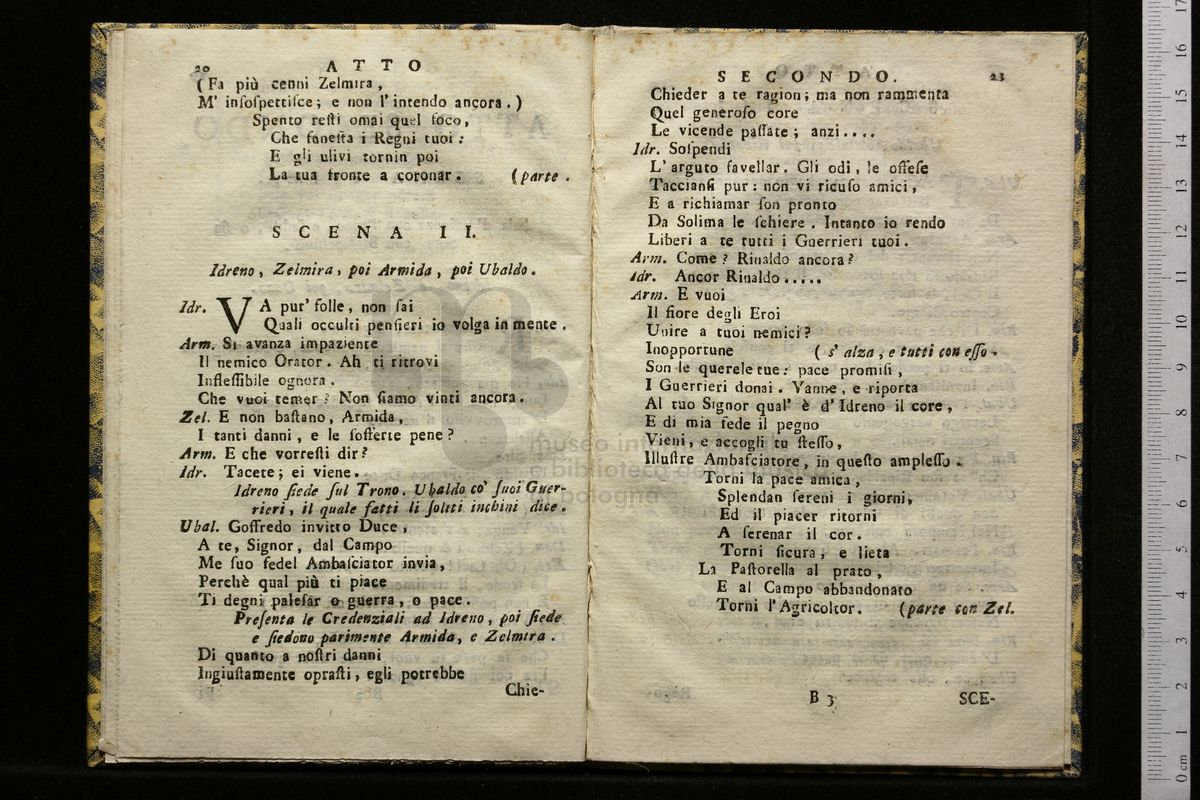 20 ATTO
(Fa più cenni Zelmira,
M' insospettisce; e non l' intendo ancora.)
Spento resti omai quel foco,
Che funesta i Regni tuoi:
E gli ulivi tornin poi
La tua fronte a coronar. (parte.
SCENA II.
Idreno, Zelmira, poi Armida, poi Ubaldo.
Idr. VA pur' folle, non sai
Quali occulti pensieri io volga in mente.
Arm. Si avanza impaziente
Il nemico Orator. Ah ti ritrovi
Inflessibile ognora.
Che vuoi temer? Non siamo vinti ancora.
Zel. E non bastano, Armida,
I tanti danni, e le sofferte pene?
Arm. E che vorresti dir?
Idr. Tacete; ei viene.
Idreno siede sul Trono. Ubaldo co' suoi Guer-
rieri, il quale fatti li soliti inchini dice.
Ubal. Goffredo invitto Duce,
A te, Signor, dal Campo
Me suo fedel Ambasciator invia,
Perchè qual più ti piace
Ti degni palesar o guerra, o pace.
Presenta le Credenziali ad Idreno, poi siede
e siedono parimente Armida, e Zelmira.
Di quanto a nostri danni
Ingiustamente oprasti, egli potrebbe
Chie-
SECONDO. 21
Chieder a te ragion; ma non rammenta
Quel generoso core
Le vicende passate; anzi....
Idr. Sospendi
L' arguto favellar. Gli odi, le offese
Tacciansi pur: non vi ricuso amici,
E a richiamar son pronto
Da Solima le schiere. Intanto io rendo
Liberi a te tutti i Guerrieri tuoi.
Arm. Come? Rinaldo ancora?
Idr. Ancor Rinaldo.....
Arm. E vuoi
Il fiore degli Eroi
Unire a tuoi nemici?
Inopportune (s' alza, e tutti con esso.
Son le querele tue: pace promisi,
I Guerrieri donai. Vanne, e riporta
Al tuo Signor qual' è d' Idreno il core,
E di mia fede il pegno
Vieni, e accogli tu stesso,
Illustre Ambasciatore, in questo amplesso.
Torni la pace amica,
Splendan sereni i giorni,
Ed il piacer ritorni
A serenar il cor.
Torni sicura, e lieta
La Pastorella al prato,
E al Campo abbandonato
Torni l' Agricoltor. (parte con Zel.
B 3 SCE-